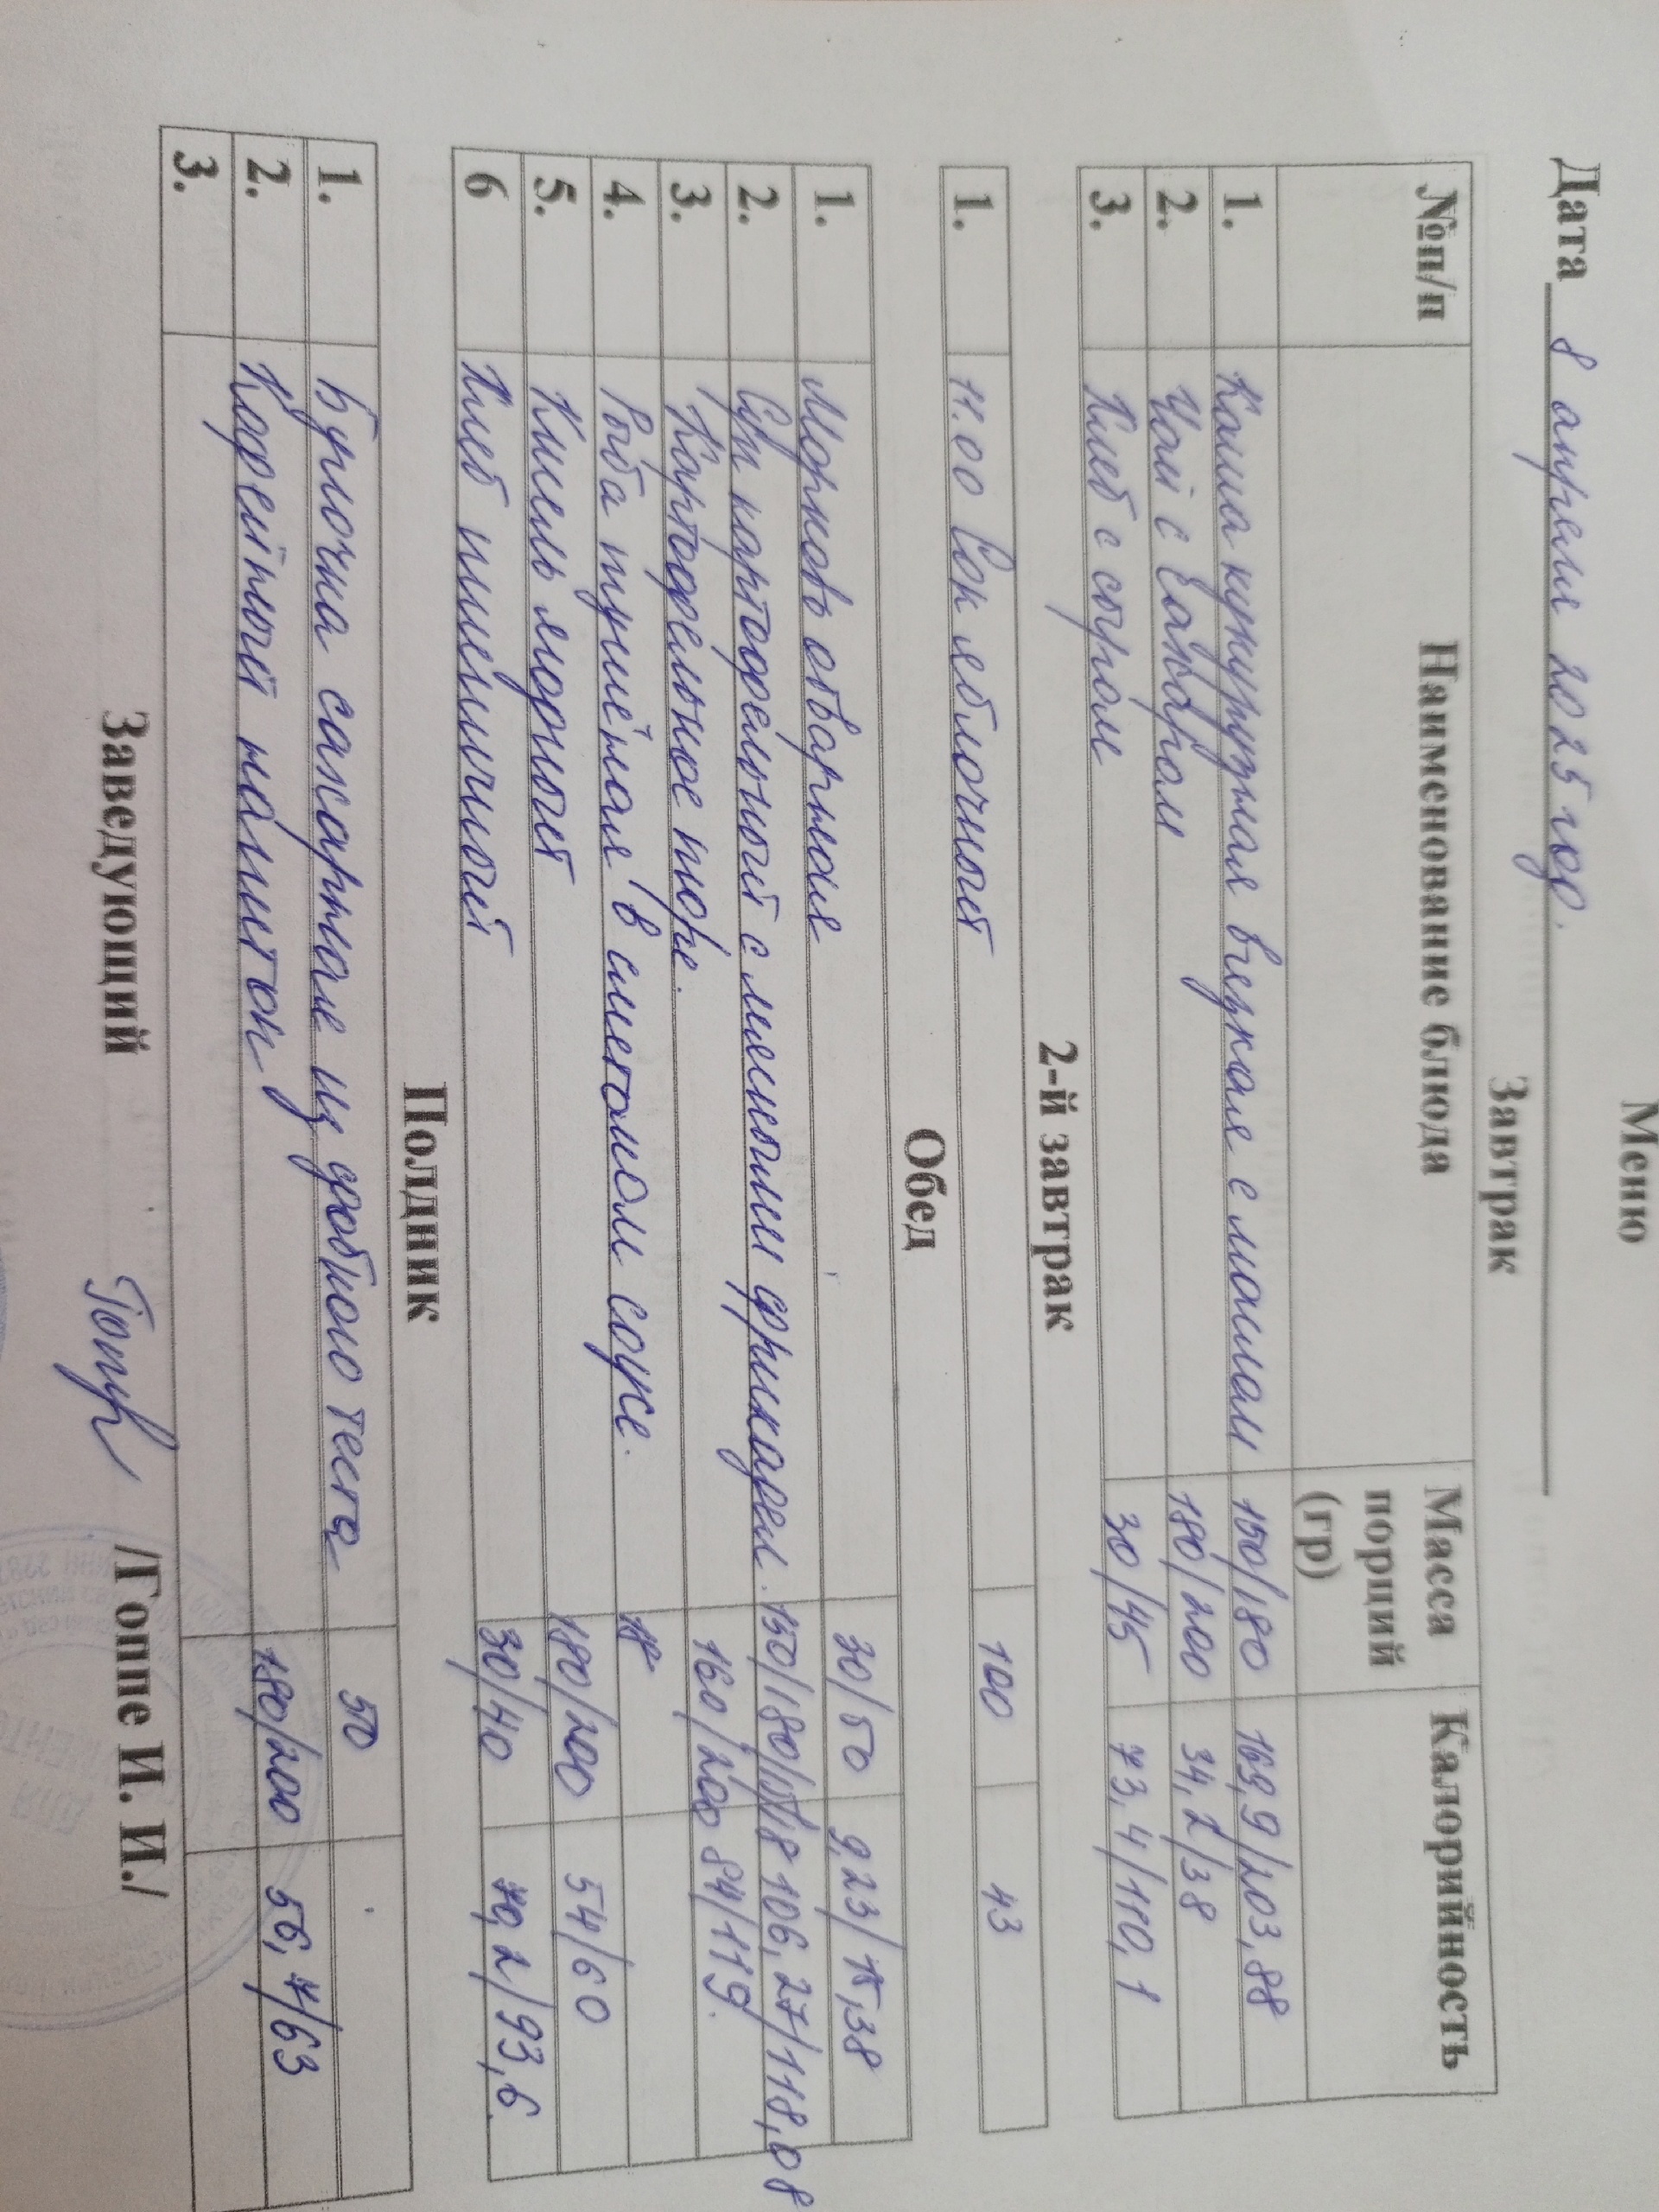 Меню
Дата 8 апреля 2025 год.
Завтрак
№п/п Наименование блюда Масса порций (гр) Калорийность
1. Каша кукурузная вязкая с маслом 150/180 169,9/203,88
2. Чай с сахаром 180/200 34,2/38
3. Хлеб с сыром 30/45 73,4/110,1
2-й завтрак
1. 11.00 Сок яблочный 100 43
Обед
1. Морковь отварная 30/50 9,23/15,38
2. Суп картофельный с мясными фрикадел. 150/180/ 106,27/118,08
3. Картофельное пюре. 160/200 84/119.
4. Рыба тушёная в сметаном соусе.
5. Кисель ягодный 180/200 54/60
6 Хлеб пшеничный 30/40 70,2/93,6
Полдник
1. Булочка сахарная из сдобного теста 50
2. Кофейный напиток 180/200 56,7/63
3.
Заведующий /Гоппе И. И./